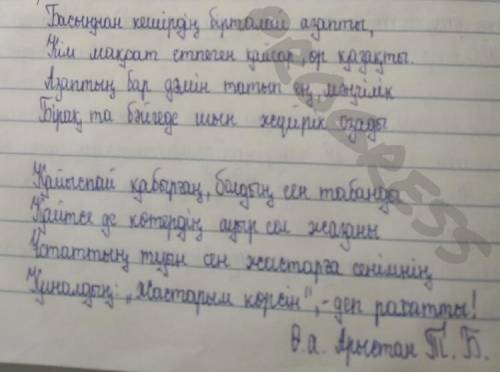 Басыңнан кешірдің бірталай азапты,
Кім мақсат етпеген қайсар, ер қазақты.
Азаптың бар дәмін татып ең, мәңгілік
Бірақ та бәйгеде шын жүйрік озады
Қайыспай қабырғаң, болдың сен табанды
Қайтсе де көтердің ауыр сол жазаны
Ұстаттың туын сен жастарға сенімнің
Қиналдың: „Жастарым көрсін", - деп рахатты!
Ө.а. Арыстан Т. Б.
PROGRESS